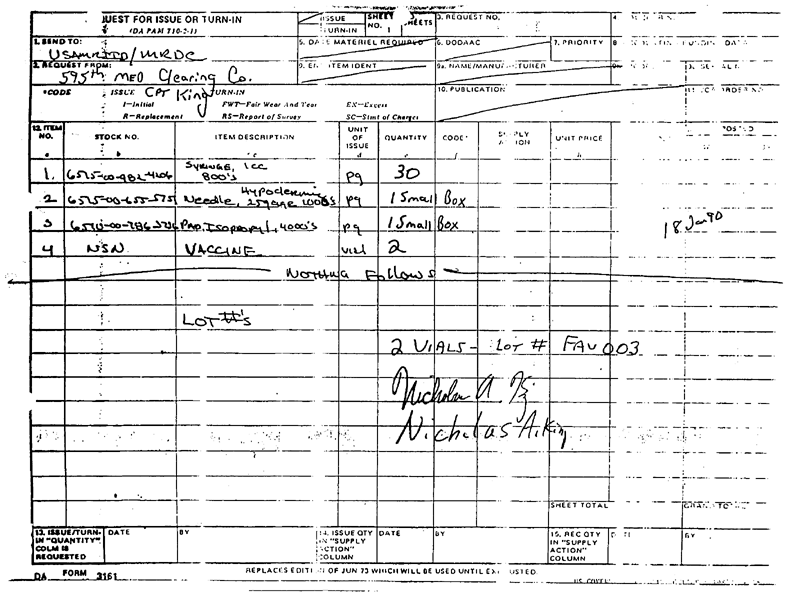 UEST FOR ISSUE OR TURN-IN
(DA PAM 710-2-1)
ISSUE
TURN-IN
SHEET NO. 1
SHEETS
3. REQUEST NO.
1. SEND TO:
USAMRIID/MRDC
5. DATE MATERIEL REQUIRED
6. DODAAC
7. PRIORITY
2. REQUEST FROM:
595th MED Clearing Co.
ITEM IDENT
9a. NAME/MANUFACTURER
*CODE
ISSUE
CPT King
TURN-IN
10. PUBLICATION
I-Initial
FWT-Fair Wear And Tear
EX-Excess
R-Replacement
RS-Report of Survey
SC-Stmt of Charges
12. ITEM NO.
STOCK NO.
ITEM DESCRIPTION
UNIT OF ISSUE
QUANTITY
CODE*
UNIT PRICE
POSTED
a b c d
1. SYRINGE, 1cc 800's pg 30
2 Needle, Hypodermic pg 1 Small Box
3 PAD, Isopropyl, 4000's pg 1 Small Box
18 Jan 90
4 NSN VACCINE vial 2
NOTHING Follows
LOT #'s
2 VIALS - LOT # FAV003
Nicholas A. King
SHEET TOTAL
13. ISSUE/TURN-IN "QUANTITY" COLM IS REQUESTED
DATE
BY
14. ISSUE QTY IN "SUPPLY ACTION" COLUMN
DATE
BY
15. REC QTY IN "SUPPLY ACTION" COLUMN
BY
DA FORM 3161
REPLACES EDITION OF JUN 73 WHICH WILL BE USED UNTIL EXHAUSTED.